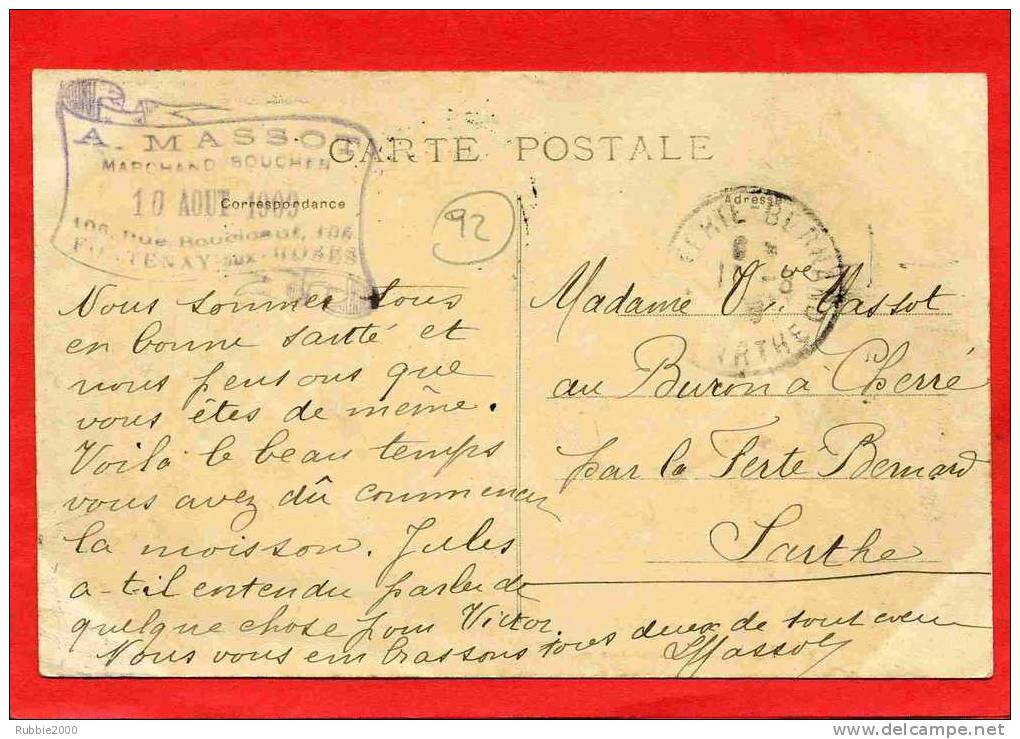 A. MASSOT
MARCHAND BOUCHER
10 AOUT 1909
106, Rue Boucicaut, 106
FONTENAY aux ROSES
CARTE POSTALE
Correspondance
Adresse
92
FERTE-BERNARD
SARTHE
Nous sommes tous
en bonne santé et
nous pensons que
vous êtes de même.
Voilà le beau temps
vous avez dû commencer
la moisson. Jules
a-t-il entendu parler de
quelque chose pour Victor.
Nous vous embrassons tous deux de tout cœur
Massot
Madame Vve Massot
au Buron à Cherré
par la Ferté Bernard
Sarthe
Rubbie2000
www.delcampe.net